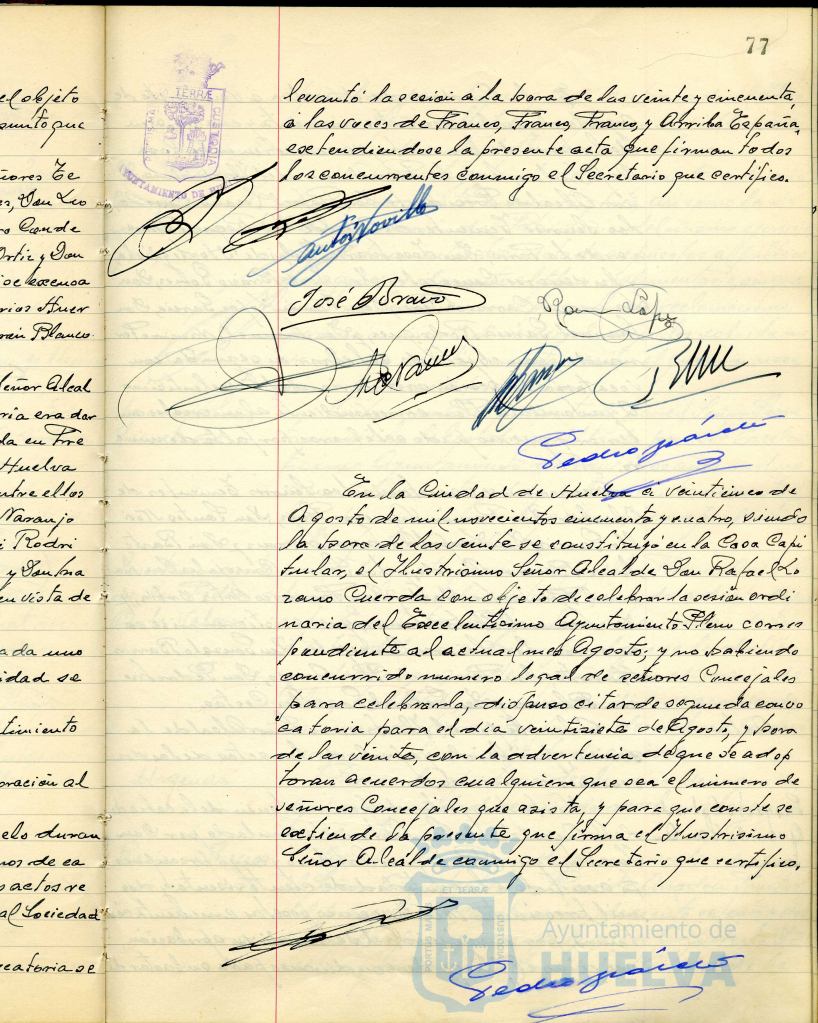 77
el objeto
sunto que
ñores Te
Don Luo
Conde
Ortiz y Don
se excusa
rios Huer
Blanco
Señor Alcal
ria era dar
da en Pre
Huelva
entre ellos
Naranjo
i Rodri
y Dontna
en vista de
ada uno
idad se
timiento
oración al
elo duran
nos de ca
actos re
al Sociedad
catoria se
PORTUS MARIS ET TERRÆ CUSTODIA
AYUNTAMIENTO DE
levantó la sesion a la hora de las veinte y cincuenta,
a las voces de Franco, Franco, Franco, y Arriba España,
extendiendose la presente acta que firman todos
los concurrentes conmigo el Secretario que certifico.
José Bravo
En la Ciudad de Huelva a veinticinco de
Agosto de mil novecientos cincuenta y cuatro, siendo
la hora de las veinte se constituyó en la Casa Capi
tular, el Ilustrisimo Señor Alcalde Don Rafael Lo
zano Cuerda con objeto de celebrar la sesión ordi
naria del Excelentisimo Ayuntamiento Pleno corres
pondiente al actual mes Agosto; y no habiendo
concurrido numero legal de señores Concejales
para celebrarla, dispuso citar de segunda convo
catoria para el dia veintisiete de Agosto, y hora
de las veinte, con la advertencia de que se adop
toran acuerdos cualquiera que sea el numero de
señores Concejales que asista, y para que conste se
extiende la presente que firma el Ilustrisimo
Señor Alcalde conmigo el Secretario que certifico.
PORTUS MARIS ET TERRÆ CUSTODIA
Ayuntamiento de
HUELVA